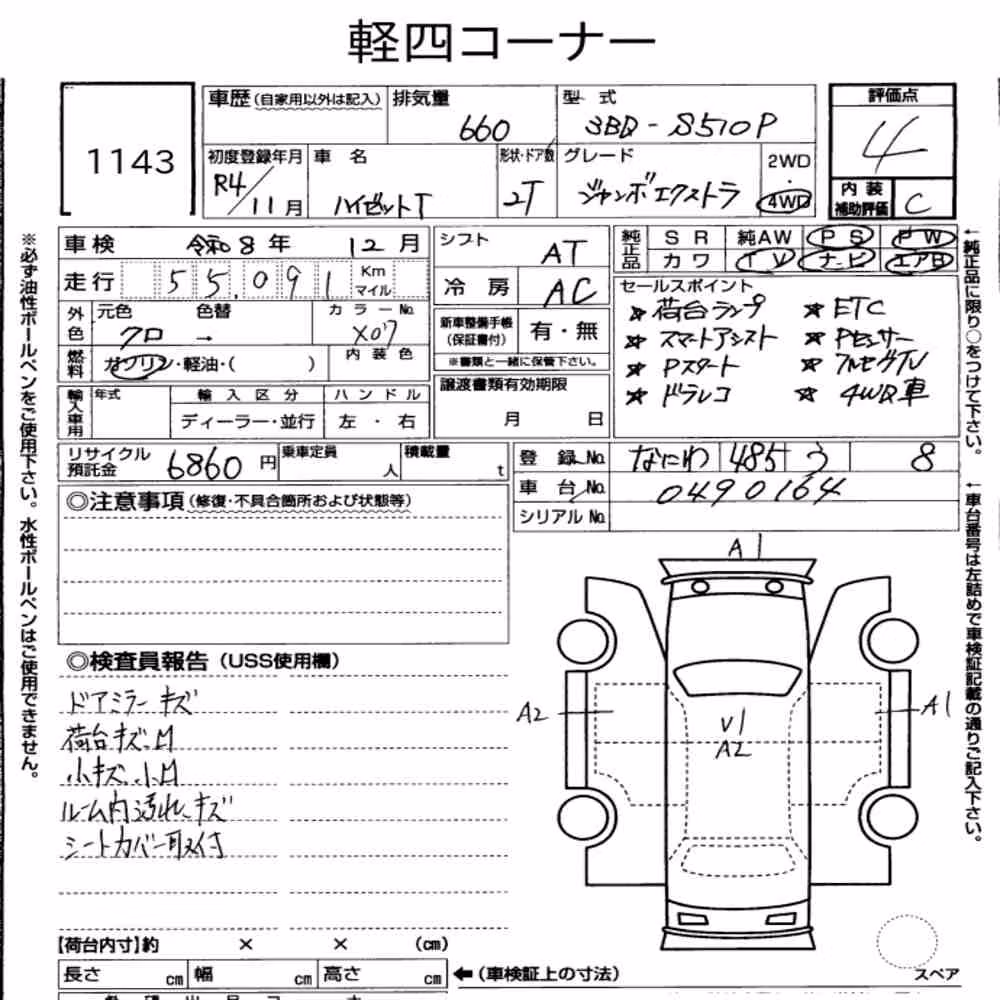 軽四コーナー
1143
車歴(自家用以外は記入)
排気量
660
型 式
3BD-S510P
評価点
4
初度登録年月
R4/11月
車 名
ハイゼットT
形状・ドア数
2T
グレード
ジャンボエクストラ
2WD
・
4WD
内装
補助評価
C
車検 令和8年 12月
シフト
AT
純正品
SR 純AW PS PW
カワ TV ナービ エアB
走行 55,091 Km
マイル
冷房
AC
セールスポイント
★ 荷台ランプ ★ ETC
★ スマートアシスト ★ Pセンサー
★ Pスタート ★ フルセグTV
★ ドラレコ ★ 4WD車
外色
元色 色替 カラーNo.
クロ → X07
新車整備手帳
(保証書付)
有・無
※書類と一緒に保管下さい。
燃料
ガソリン・軽油・( )
内装色
譲渡書類有効期限
月 日
輸入車用
年式
輸入区分
ハンドル
ディーラー・並行
左・右
リサイクル
預託金
6860円
乗車定員
人
積載量
t
登録No. なにわ 485 う 8
車台No. 0490164
シリアルNo.
◎注意事項(修復・不具合箇所および状態等)
◎検査員報告(USS使用欄)
ドアミラーキズ
荷台キズ、凹
小キズ、小凹
ルーム内汚れ、キズ
シートカバー取付
A1
A2
A1
V1
A2
【荷台内寸】約 × × (cm)
長さ cm 幅 cm 高さ cm
←(車検証上の寸法)
スペア
※必ず油性ボールペンをご使用下さい。水性ボールペンはご使用できません。
←純正品に限り○をつけて下さい。
←車台番号は左詰めで車検証記載の通りご記入下さい。